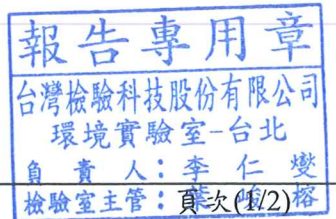 報告專用章
台灣檢驗科技股份有限公司
環境實驗室-台北
負責人：李仁燮
檢驗室主管：榕
頁次(1/2)